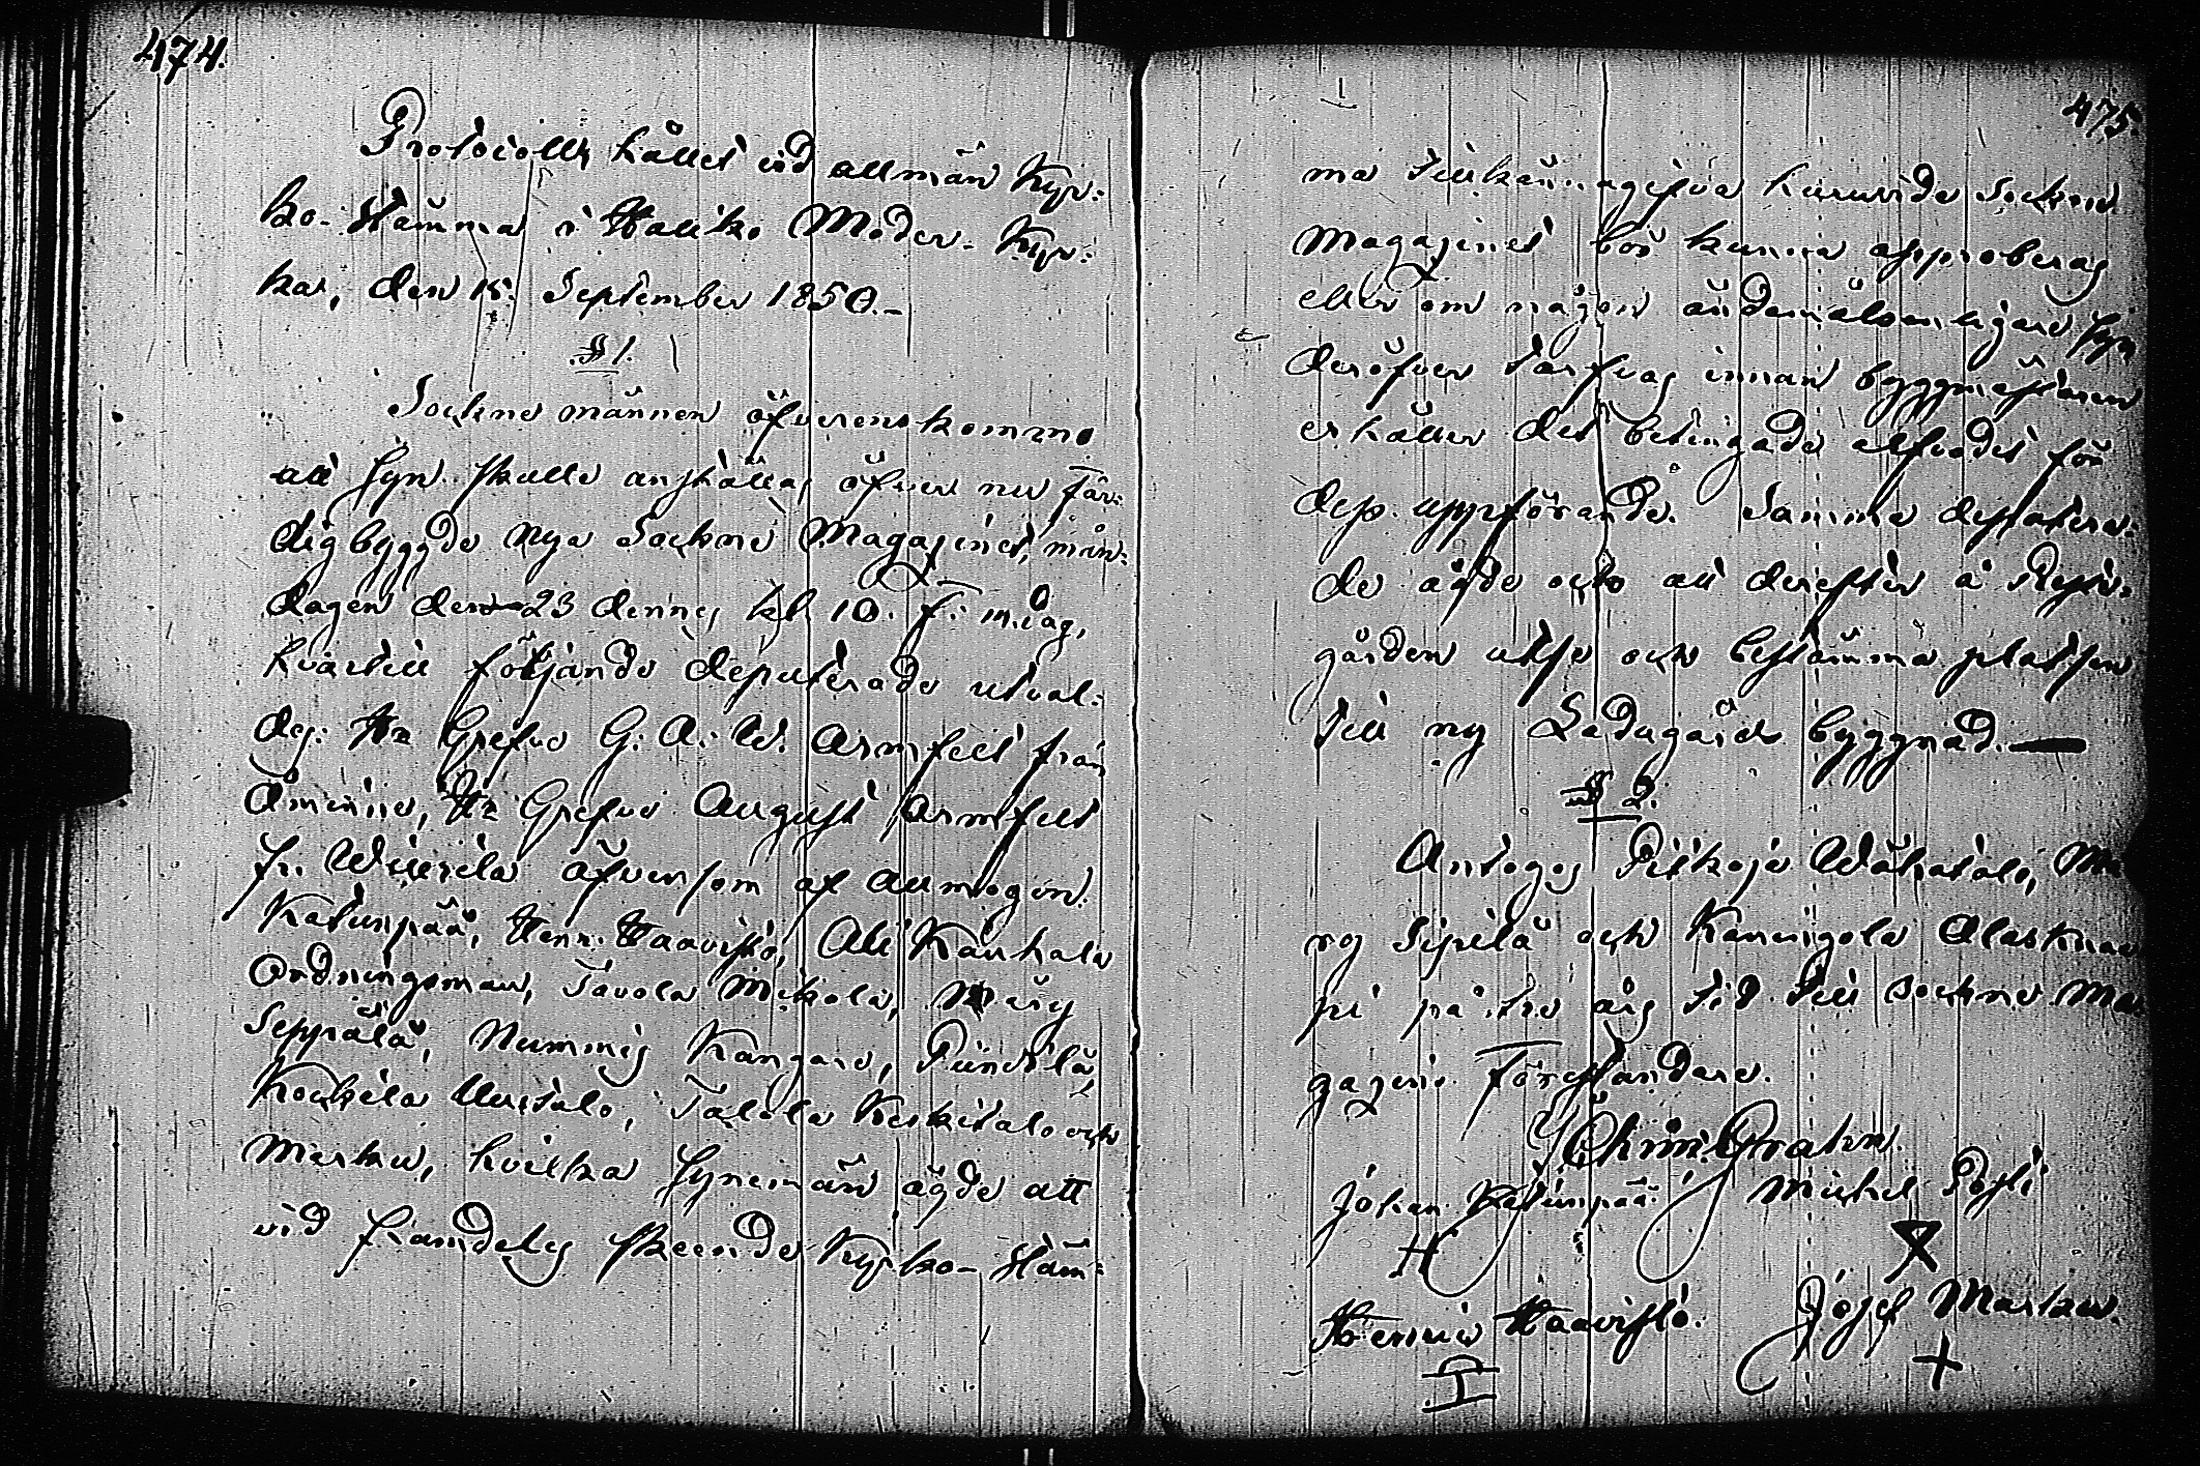 474.
Protocoll, hållet vid allmän Kyr:
ko-Stämma i Halliko Moder-Kyr:
ka, den 15. September 1850.-
§ 1.
Sockne männen öfverenskommo
att Syn skulle anställas öfver nu fär:
digbyggde nya Sockne Magazinet, mån:
dagen den 23 dennes kl. 10. f. m. dag,
hvartill följande deputerade utval:
des: Hr Grefve G. A. W. Armfelt från
Åminne, Hr Grefve August Armfelt
fr. Wiurila äfvensom af allmogen.
Katunpää, Henr. Haavisto, Ali Kauhala
Ordningsman, Tavola Mikola, Märy
Seppälä, Nummis Kangare, Piindilä,
Kockila Uusitalo, Talola Keskitalo och
Marku, hvilka Synemän ägde att
vid framdeles skeende Kyrko-Stäm:
475.
ma tillkännagifva huruvida Sockne
Magazinet bör kunna approberas
eller om någon ändamålsenligare Syn
deröfver tarfvas innan byggmästaren
erhåller det betingade arfvodet för
dess uppförande. Samma deputera:
de ägde och att derefter å Prest:
gården utse och bestämma platsen
till ny Ladugårds byggnad.
§ 2.
Antogos Pitkoja Wähätalo, Mä
ry Sipilä och Kaningola Alasknaa
pi på tre års tid till Sockne Ma
gazins Föreståndare.
Johan Katunpää. Michel Posti
Henric Haavisto. Josef Marku.